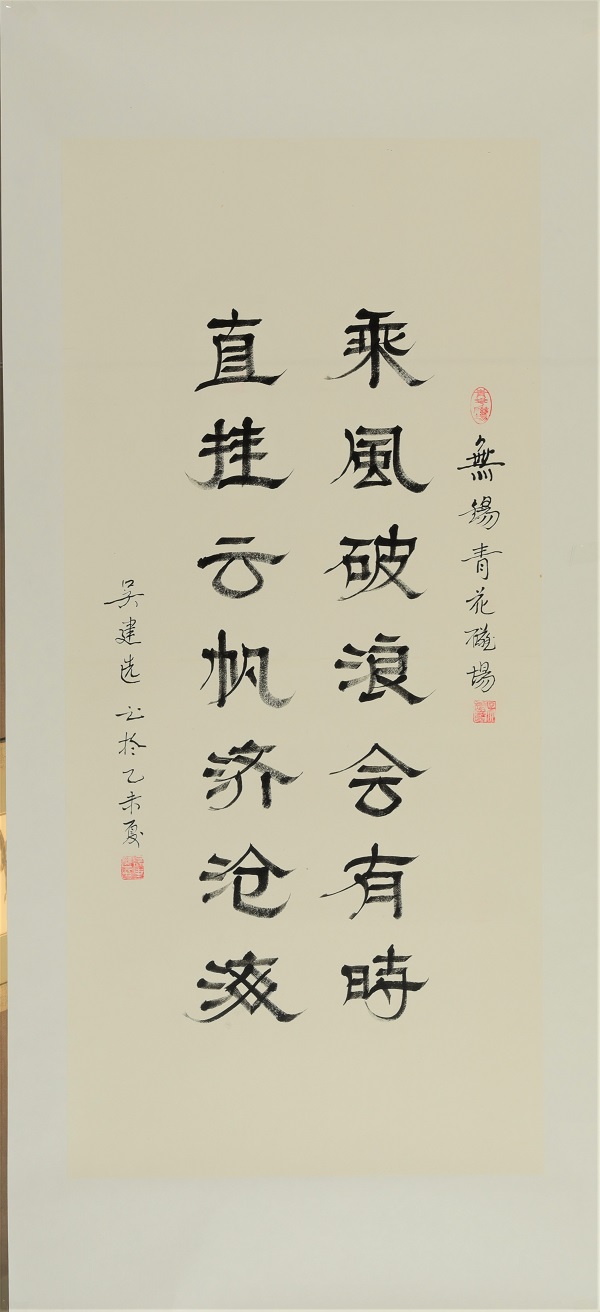 無錫青花磁場
乘風破浪会有時
直挂云帆济沧海
吴建选书於乙未夏